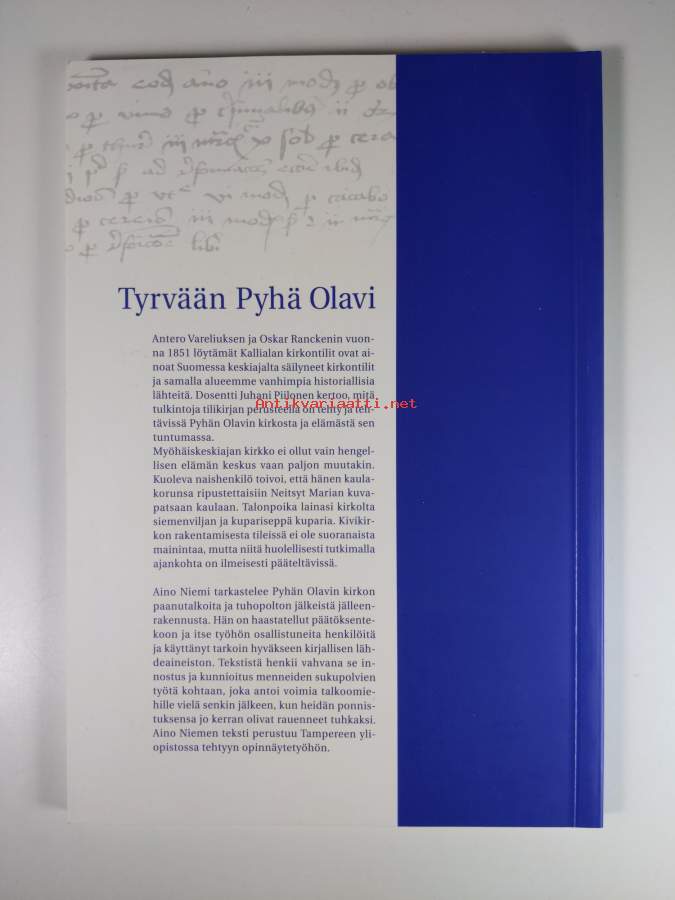 Tyrvään Pyhä Olavi
Antero Vareliuksen ja Oskar Ranckenin vuon-
na 1851 löytämät Kallialan kirkontilit ovat ai-
noat Suomessa keskiajalta säilyneet kirkontilit
ja samalla alueemme vanhimpia historiallisia
lähteitä. Dosentti Juhani Piilonen kertoo, mitä
Antikvariaatti.net
tulkintoja tilikirjan perusteella on tehty ja teh-
tävissä Pyhän Olavin kirkosta ja elämästä sen
tuntumassa.
Myöhäiskeskiajan kirkko ei ollut vain hengel-
lisen elämän keskus vaan paljon muutakin.
Kuoleva naishenkilö toivoi, että hänen kaula-
korunsa ripustettaisiin Neitsyt Marian kuva-
patsaan kaulaan. Talonpoika lainasi kirkolta
siemenviljan ja kupariseppä kuparia. Kivikir-
kon rakentamisesta tileissä ei ole suoranaista
mainintaa, mutta niitä huolellisesti tutkimalla
ajankohta on ilmeisesti pääteltävissä.
Aino Niemi tarkastelee Pyhän Olavin kirkon
paanutalkoita ja tuhopolton jälkeistä jälleen-
rakennusta. Hän on haastatellut päätöksente-
koon ja itse työhön osallistuneita henkilöitä
ja käyttänyt tarkoin hyväkseen kirjallisen läh-
deaineiston. Tekstistä henkii vahvana se in-
nostus ja kunnioitus menneiden sukupolvien
työtä kohtaan, joka antoi voimia talkoomie-
hille vielä senkin jälkeen, kun heidän ponnis-
tuksensa jo kerran olivat rauenneet tuhkaksi.
Aino Niemen teksti perustuu Tampereen yli-
opistossa tehtyyn opinnäytetyöhön.